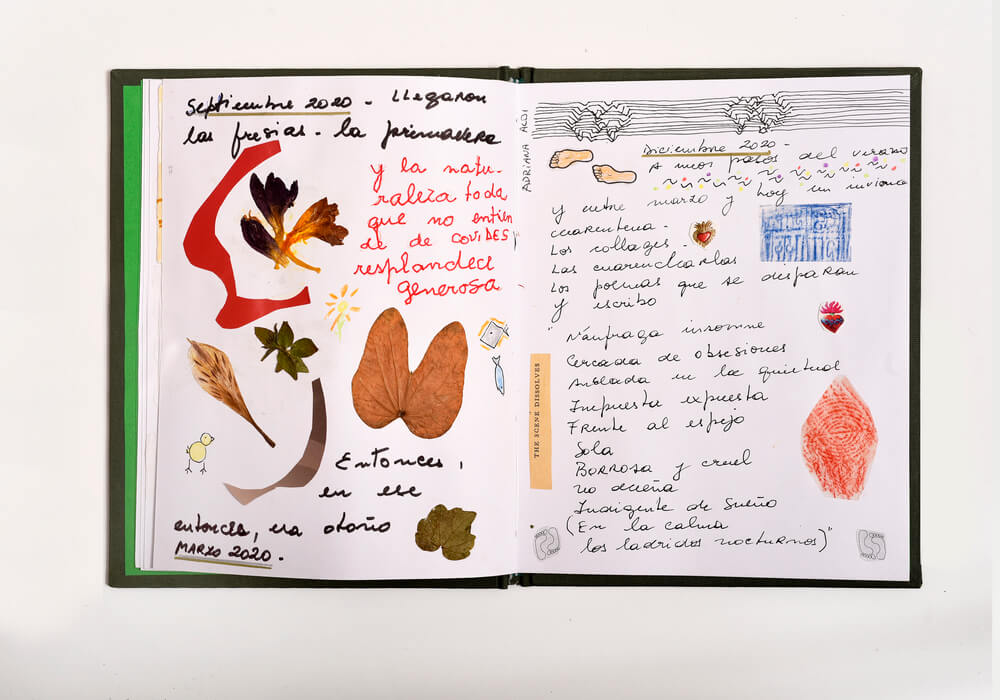 Septiembre 2020 - Llegaron
las fresias - la primavera
y la natu-
raleza toda
que no entien
de de COVIDES
resplandece
generosa
Entonces,
en ese
entonces, era otoño
MARZO 2020.
ADRIANA ALDI
Diciembre 2020 -
A unos pasos del verano
y entre marzo y hoy un invierno
cuarentena.
Los collages.
Las cuarencharlas
Los poemas que se disparan
y escribo
"Náufraga insomne
Cercada de obsesiones
Anclada en la quietud
Impuesta expuesta
Frente al espejo
Sola
Borrosa y cruel
no dueña
Indigente de Sueño
(En la calma
los ladridos nocturnos)"
THE SCENE DISSOLVES